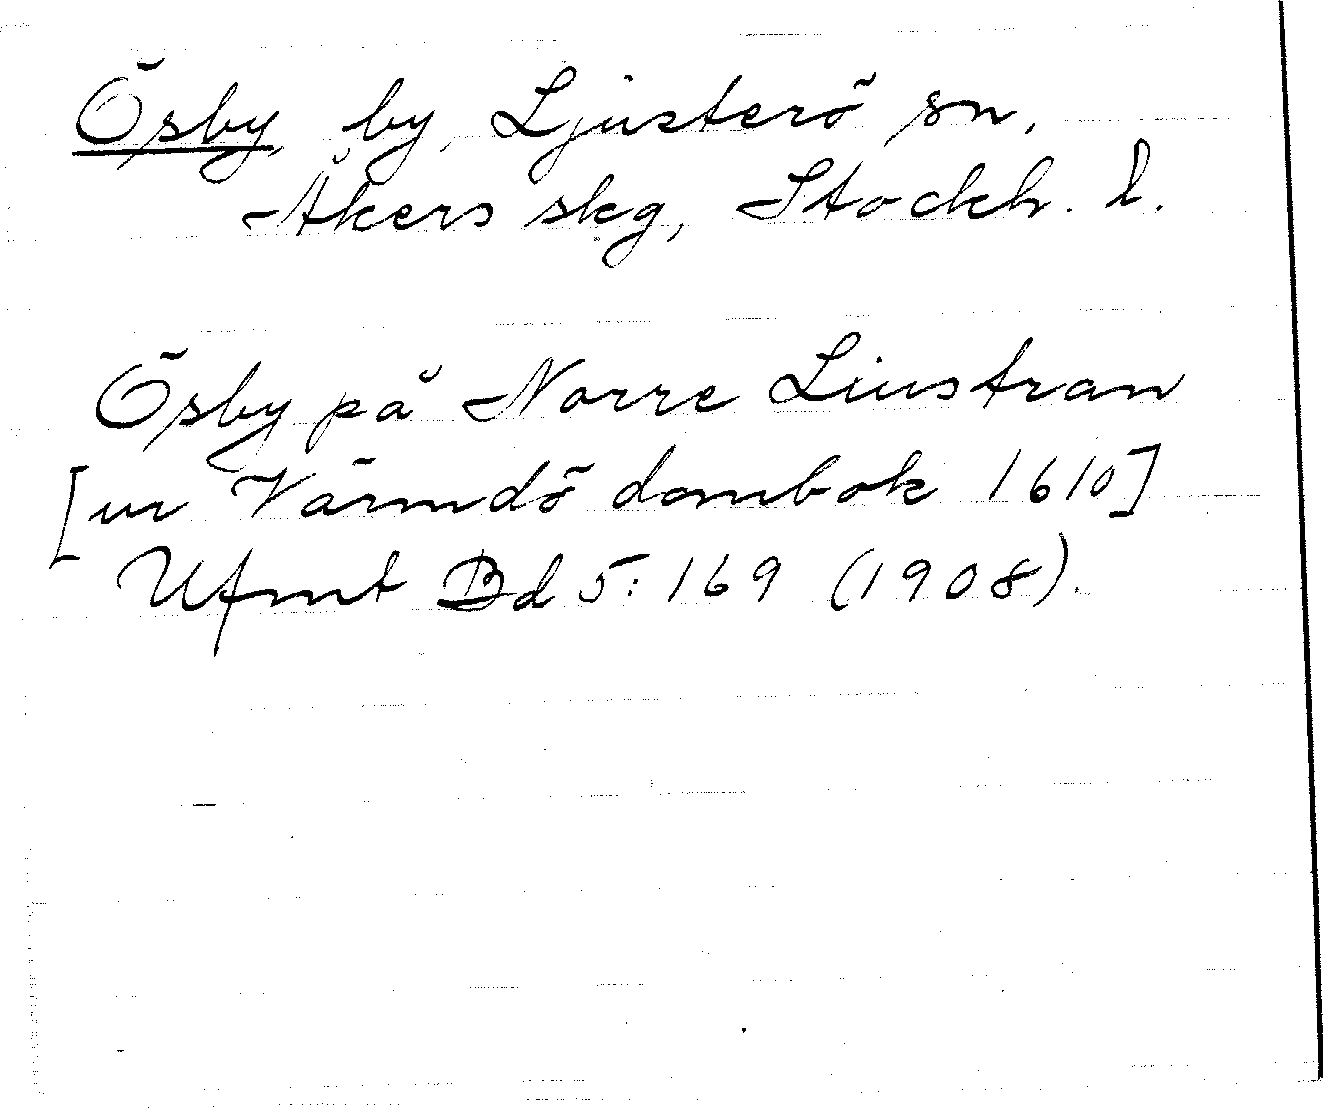 Ösby, by, Ljusterö sn,
Åkers skg, Stockh. l.
Ösby på Norre Liustran
[ur Värmdö dombok 1610]
Ufmt Bd 5: 169 (1908).